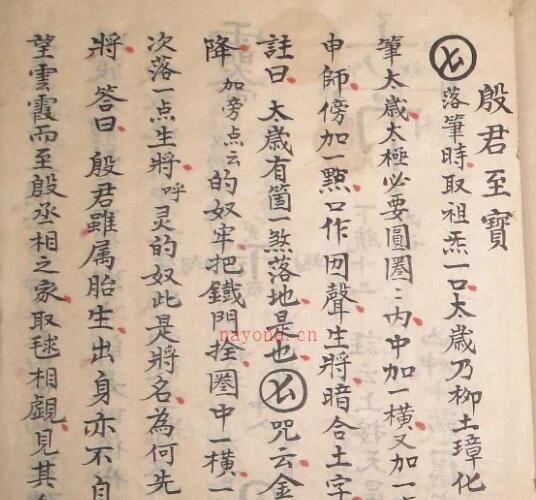 殷君至寶
落筆時取祖炁一口太歳乃柳土璋化
筆太歳太極必要圓圏〻内中加一横又加一
申師傍加一㸃口作囙聲生將暗合土字
註曰太歳有箇一煞落地是也
咒云金
降加旁点云的奴牢把鐵門拴圏中一横一
次落一点生將呼灵的奴此是將名為何先
將答曰殷君雖属胎生出身亦不自
望雲霞而至殷丞相之家取毬相觑見其
nayona.cn